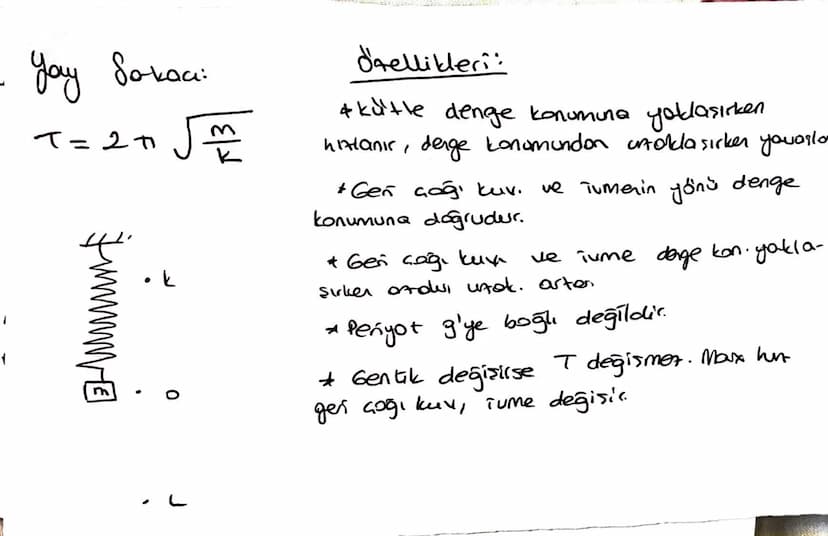 Yay Sarkacı:
T = 2π √m/k
m
. k
. O
. L
Özellikleri:
* Kütle denge konumuna yaklaşırken
hızlanır, denge konumundan uzaklaşırken yavaşla
* Geri çağı kuv. ve ivmenin yönü denge
konumuna doğrudur.
* Geri çağı kuv. ve ivme denge kon. yakla-
şırken azalır uzak. artar.
* Periyot g'ye bağlı değildir.
* Genlik değişirse T değişmez. Max hız
geri çağı kuv, ivme değişir.